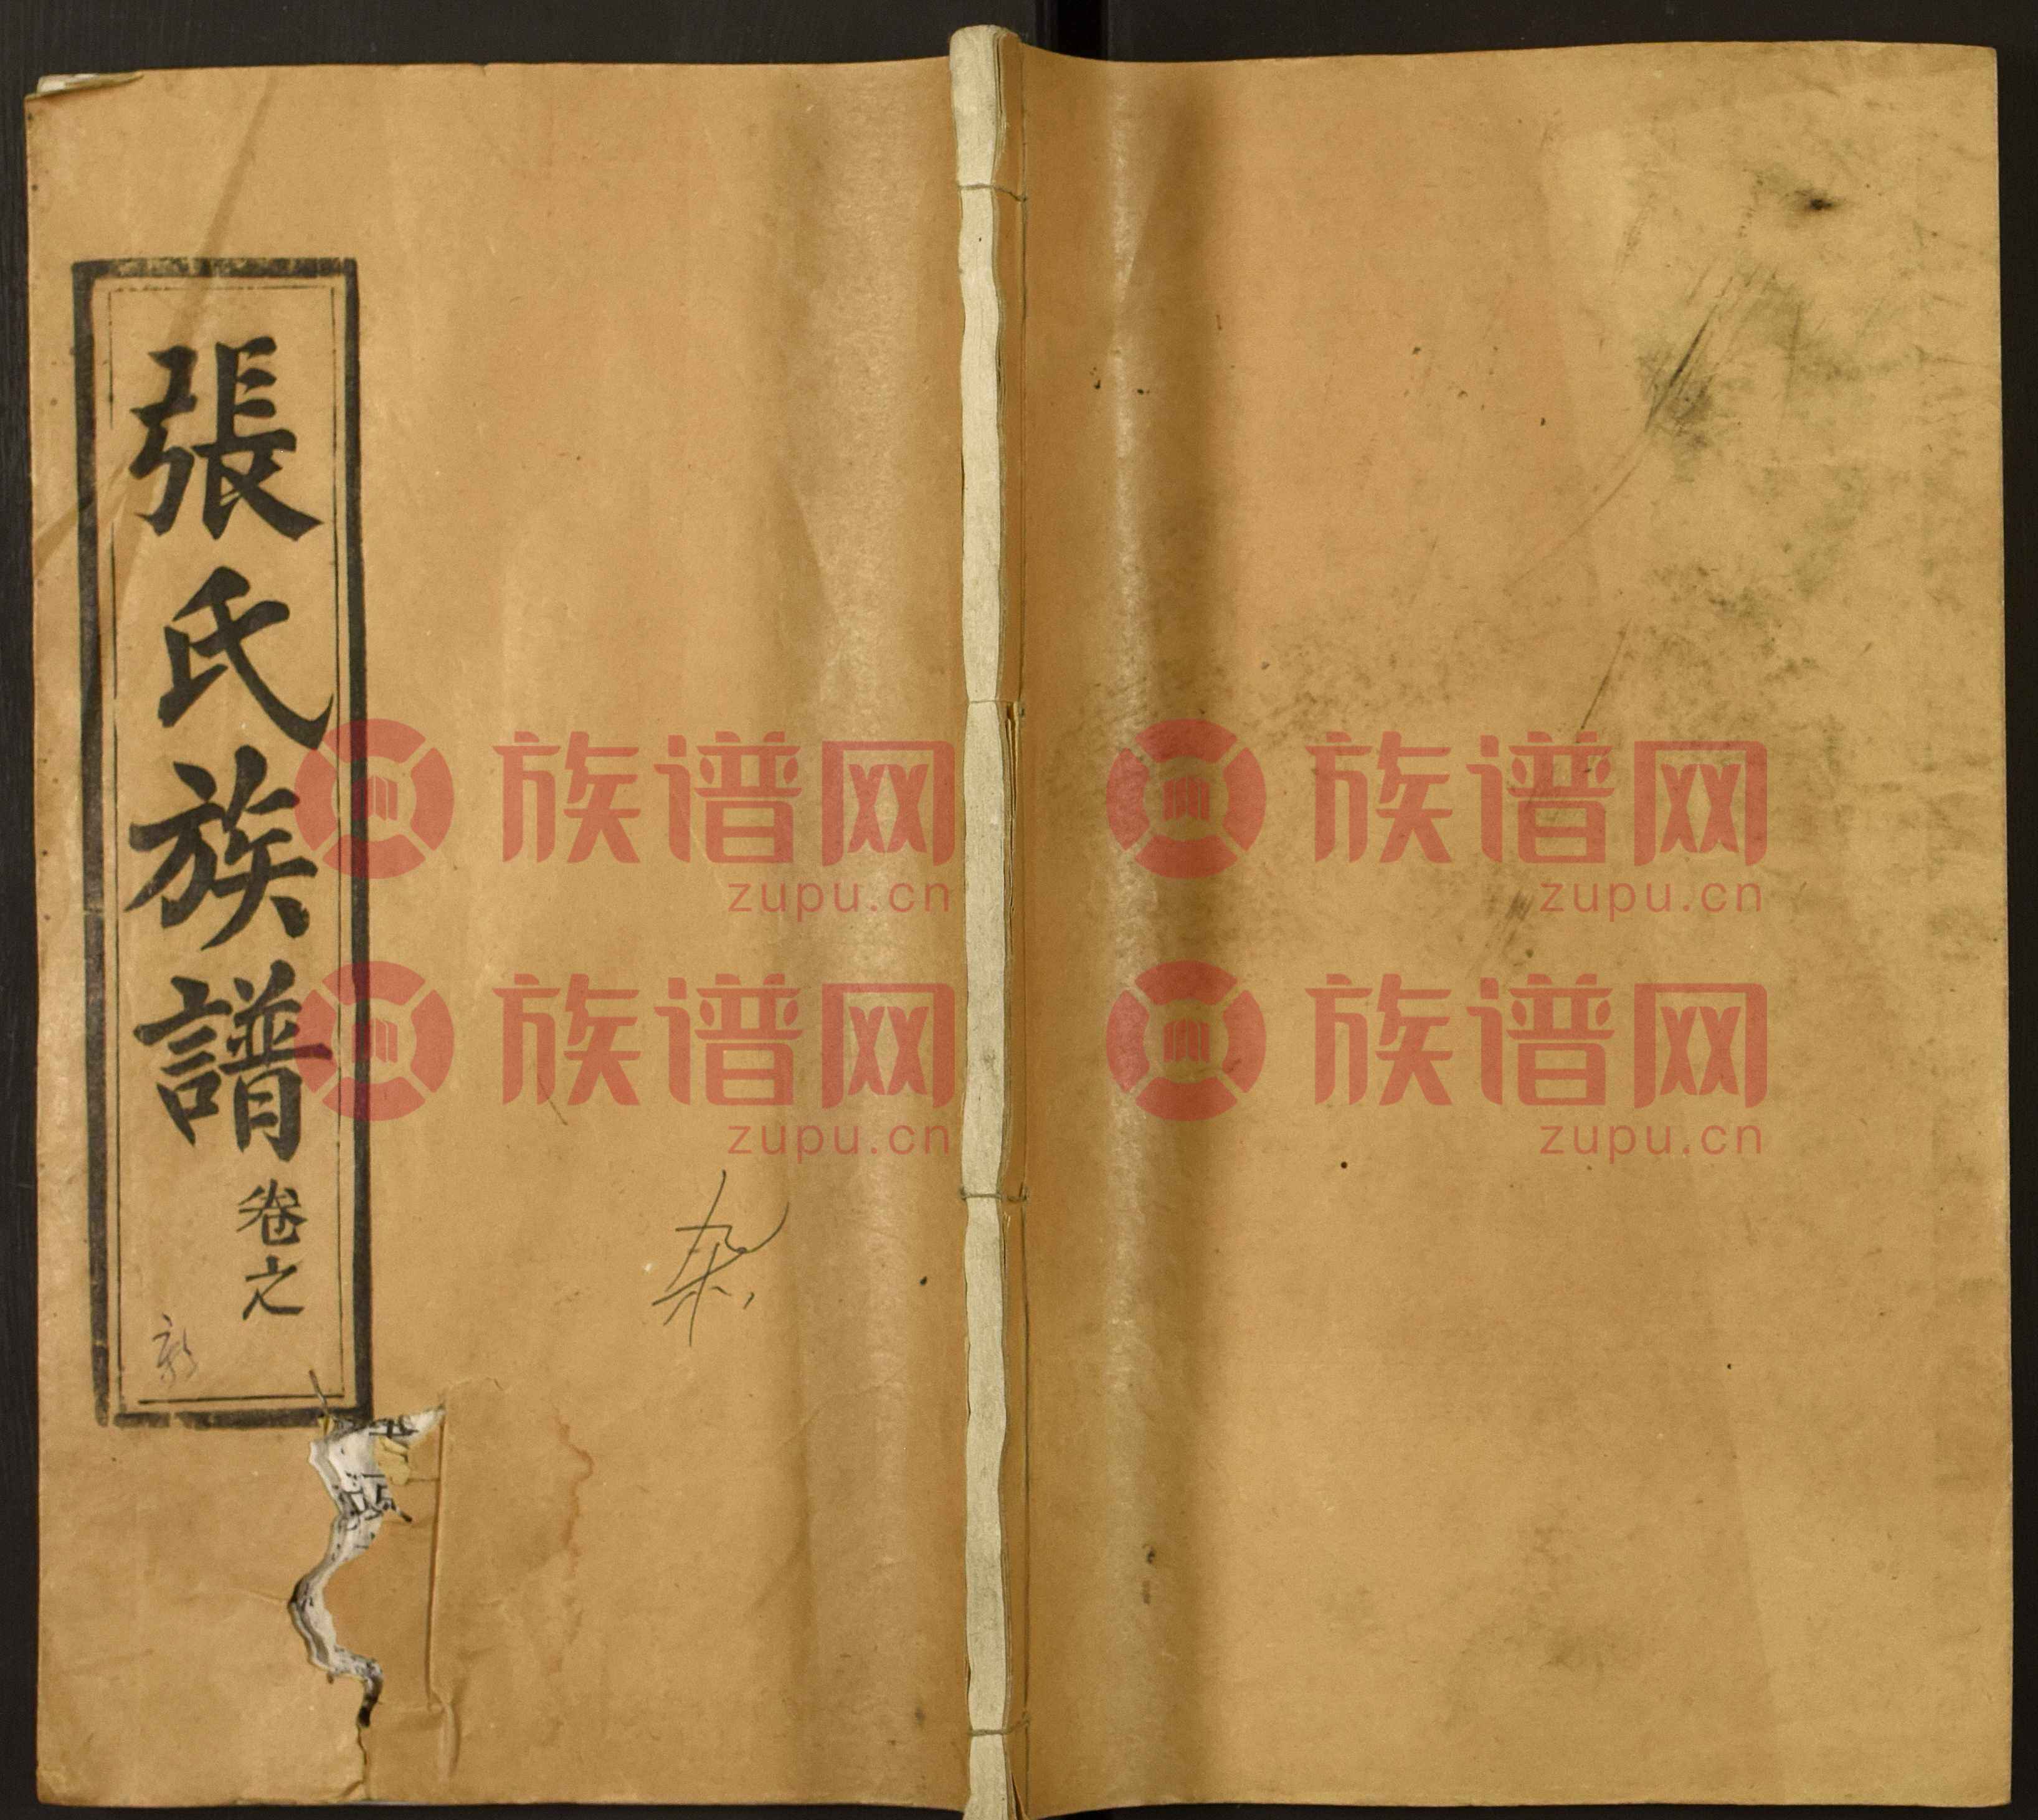 張氏族譜
卷之
杂
族谱网
zupu.cn
族谱网
zupu.cn
族谱网
zupu.cn
族谱网
zupu.cn